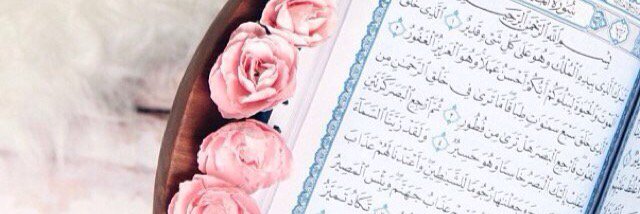 سُورَةُ
بِسْمِ اللَّهِ الرَّحْمَٰنِ الرَّحِيمِ
الَّذِي بِيَدِهِ الْمُلْكُ وَهُوَ عَلَىٰ كُلِّ شَيْءٍ قَدِيرٌ ١ الَّذِي خَلَقَ
الْمَوْتَ وَالْحَيَاةَ لِيَبْلُوَكُمْ أَيُّكُمْ أَحْسَنُ عَمَلًا وَهُوَ الْعَزِيزُ الْغَفُورُ ٢
الَّذِي خَلَقَ سَبْعَ سَمَاوَاتٍ طِبَاقًا مَّا تَرَىٰ فِي خَلْقِ الرَّحْمَٰنِ مِن
فَارْجِعِ الْبَصَرَ هَلْ تَرَىٰ مِن فُطُورٍ ٣ ثُمَّ ارْجِعِ الْبَصَرَ كَرَّتَيْنِ
إِلَيْكَ الْبَصَرُ خَاسِئًا وَهُوَ حَسِيرٌ ٤ وَلَقَدْ زَيَّنَّا السَّمَاءَ
وَجَعَلْنَاهَا رُجُومًا لِّلشَّيَاطِينِ وَأَعْتَدْنَا لَهُمْ عَذَابَ
عَذَابُ جَهَنَّمَ وَبِئْسَ الْمَصِيرُ
وَهِيَ تَفُورُ